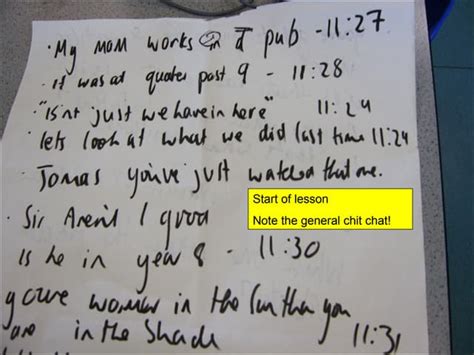 · My MOM works in a pub - 11:27
· it was at quater past 9 - 11:28
· "isnt just we have in here" 11:29
· lets look at what we did last time 11:29
· Tomas you've just watched that one.
Start of lesson
Note the general chit chat!
· Sir Aren't I good
is he in year 8 - 11:30
woman in the sun than you
are in the Shade 11:31